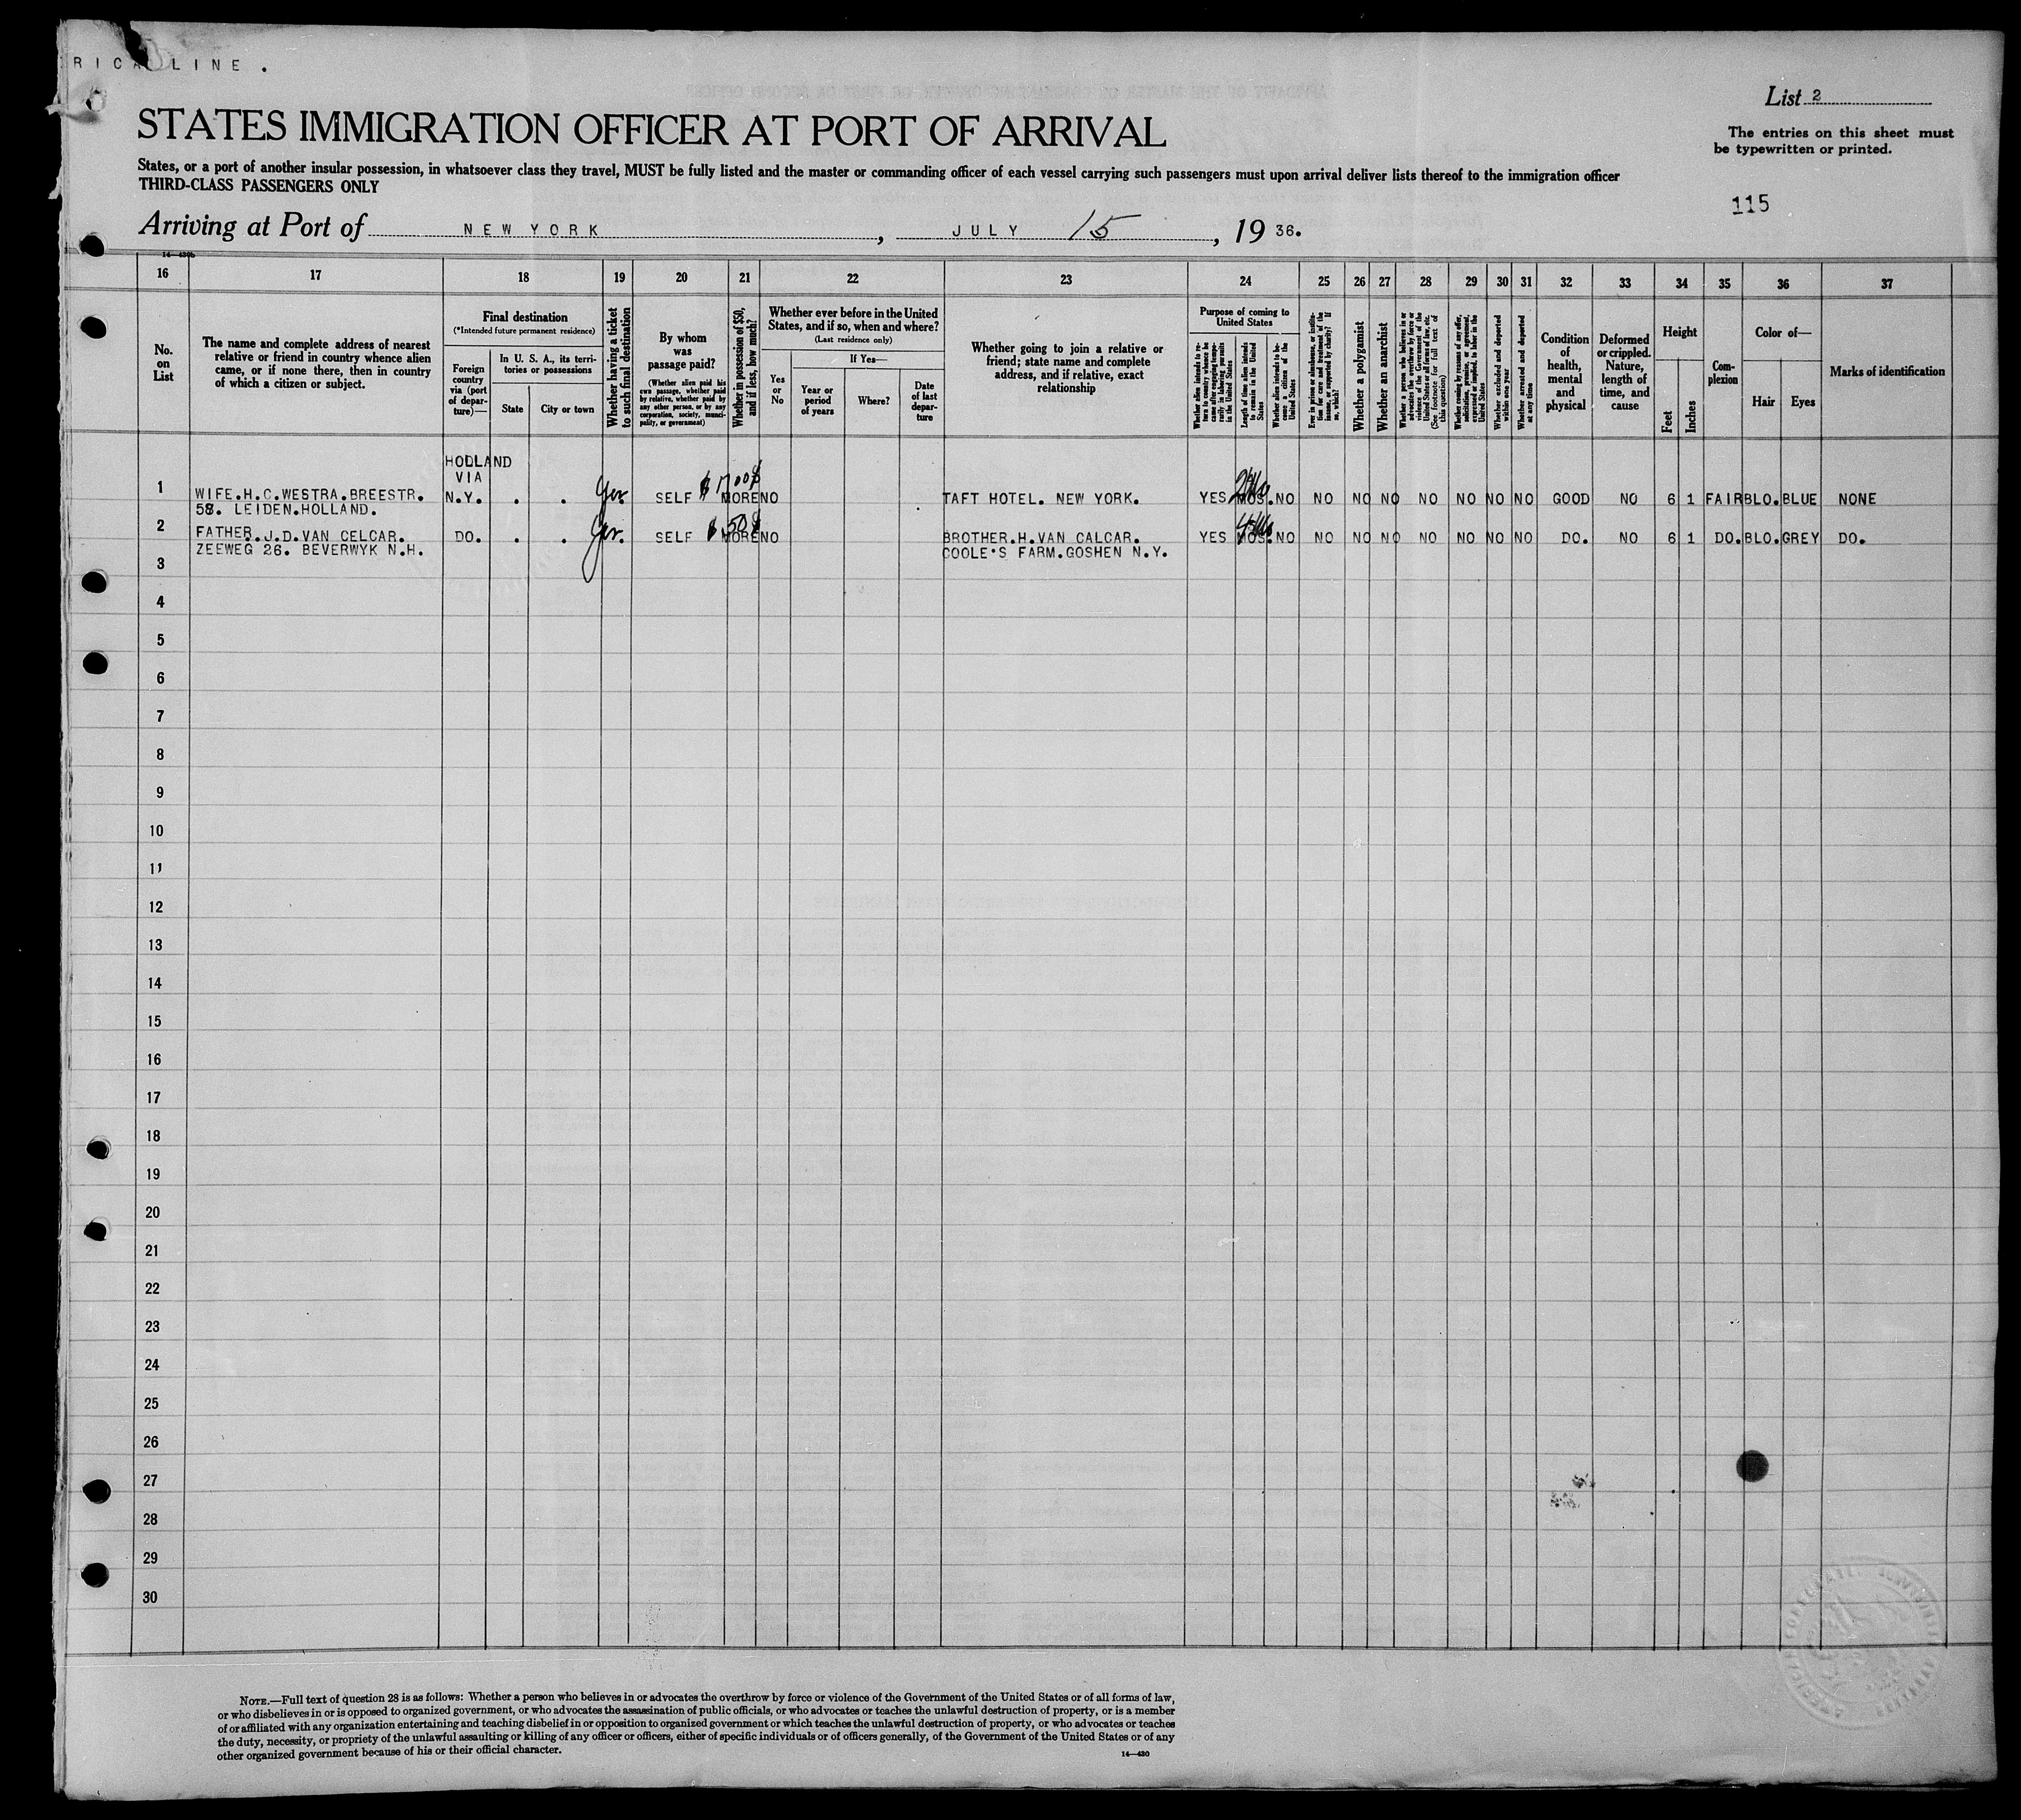 RICA LINE.
List 2
STATES IMMIGRATION OFFICER AT PORT OF ARRIVAL
The entries on this sheet must
be typewritten or printed.
States, or a port of another insular possession, in whatsoever class they travel, MUST be fully listed and the master or commanding officer of each vessel carrying such passengers must upon arrival deliver lists thereof to the immigration officer
THIRD-CLASS PASSENGERS ONLY
115
Arriving at Port of NEW YORK, JULY 15, 19 36.
16 17 18 19 20 21 22 23 24 25 26 27 28 29 30 31 32 33 34 35 36 37
No.
on
List
The name and complete address of nearest
relative or friend in country whence alien
came, or if none there, then in country
of which a citizen or subject.
Final destination
(*Intended future permanent residence)
Foreign
country
via (port
of depar-
ture)—
In U. S. A., its terri-
tories or possessions
State
City or town
Whether having a ticket
to such final destination
By whom
was
passage paid?
(Whether alien paid his
own passage, whether paid
by relative, whether paid by
any other person, or by any
corporation, society, munici-
pality, or government)
Whether in possession of $50,
and if less, how much?
Whether ever before in the United
States, and if so, when and where?
(Last residence only)
Yes
or
No
If Yes—
Year or
period
of years
Where?
Date
of last
depar-
ture
Whether going to join a relative or
friend; state name and complete
address, and if relative, exact
relationship
Purpose of coming to
United States
Whether alien intends to re-
turn to country whence he
came after engaging tempo-
rarily in laboring pursuits
in the United States
Length of time alien intends
to remain in the United
States
Whether alien intends to be-
come a citizen of the
United States
Ever in prison or almshouse, or institu-
tion for care and treatment of the
insane, or supported by charity? If
so, which?
Whether a polygamist
Whether an anarchist
Whether a person who believes in or
advocates the overthrow by force or
violence of the Government of the
United States or all forms of law, etc.
(See footnote for full text of
this question)
Whether coming by reason of any offer,
solicitation, promise, or agreement,
expressed or implied, to labor in the
United States
Whether excluded and deported
within one year
Whether arrested and deported
at any time
Condition
of
health,
mental
and
physical
Deformed
or crippled.
Nature,
length of
time, and
cause
Height
Feet
Inches
Com-
plexion
Color of—
Hair
Eyes
Marks of identification
HOLLAND
VIA
1 WIFE.H.C.WESTRA.BREESTR. N.Y. . . yes SELF MORE NO TAFT HOTEL. NEW YORK. YES MOS. NO NO NO NO NO NO NO NO GOOD NO 6 1 FAIR BLO. BLUE NONE
58. LEIDEN.HOLLAND.
2 FATHER.J.D.VAN CELCAR. DO. . . yes. SELF $50 MORE NO BROTHER.H.VAN CALCAR. YES MOS. NO NO NO NO NO NO NO NO DO. NO 6 1 DO. BLO. GREY DO.
ZEEWEG 26. BEVERWYK N.H. COOLE'S FARM.GOSHEN N.Y.
3
4
5
6
7
8
9
10
11
12
13
14
15
16
17
18
19
20
21
22
23
24
25
26
27
28
29
30
NOTE.—Full text of question 28 is as follows: Whether a person who believes in or advocates the overthrow by force or violence of the Government of the United States or of all forms of law,
or who disbelieves in or is opposed to organized government, or who advocates the assassination of public officials, or who advocates or teaches the unlawful destruction of property, or is a member
of or affiliated with any organization entertaining and teaching disbelief in or opposition to organized government or which teaches the unlawful destruction of property, or who advocates or teaches
the duty, necessity, or propriety of the unlawful assaulting or killing of any officer or officers, either of specific individuals or of officers generally, of the Government of the United States or of any
other organized government because of his or their official character.
14—430